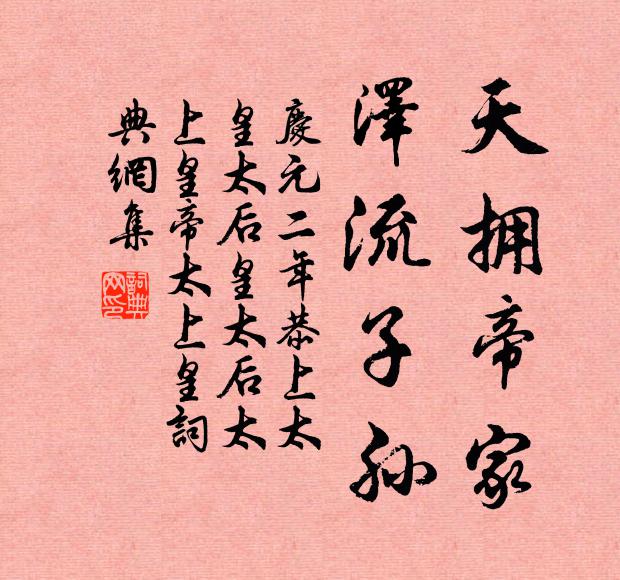 天拥帝家
澤流子孙
慶元二年恭上太
皇太后皇太后太
上皇帝太上皇詞
典網集
詞典
网印